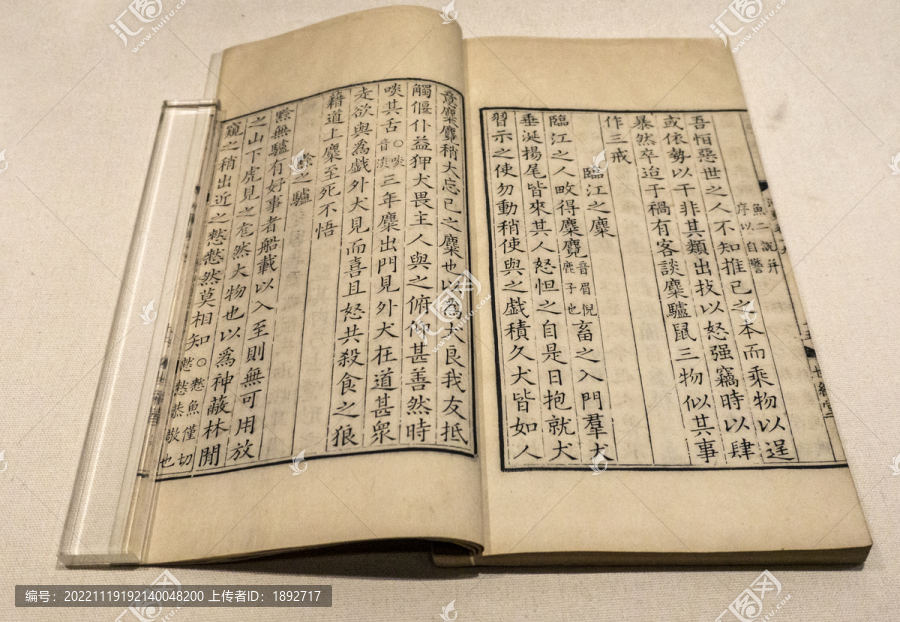 序以自警
吾恒惡世之人不知推己之本而乘物以逞
或依勢以干非其類出技以怒强竊時以肆
暴然卒迨于禍有客談麋驢鼠三物似其事
作三戒
臨江之麋
臨江之人畋得麋麑音眉倪鹿子也畜之入門羣犬
垂涎揚尾皆來其人怒怛之自是日抱就犬
習示之使勿動稍使與之戲積久犬皆如人
意麋麑稍大忘己之麋也以爲犬良我友抵
觸偃仆益狎犬畏主人與之俯仰甚善然時
啖其舌○啖音淡三年麋出門見外犬在道甚衆
走欲與爲戲外犬見而喜且怒共殺食之狼
藉道上麋至死不悟
黔之驢
黔無驢有好事者船載以入至則無可用放
之山下虎見之尨然大物也以爲神蔽林間
窺之稍出近之憖憖然莫相知○憖魚僅切憖憖恭敬也
汇图网
www.huitu.com
编号：20221119192140048200 上传者ID：1892717